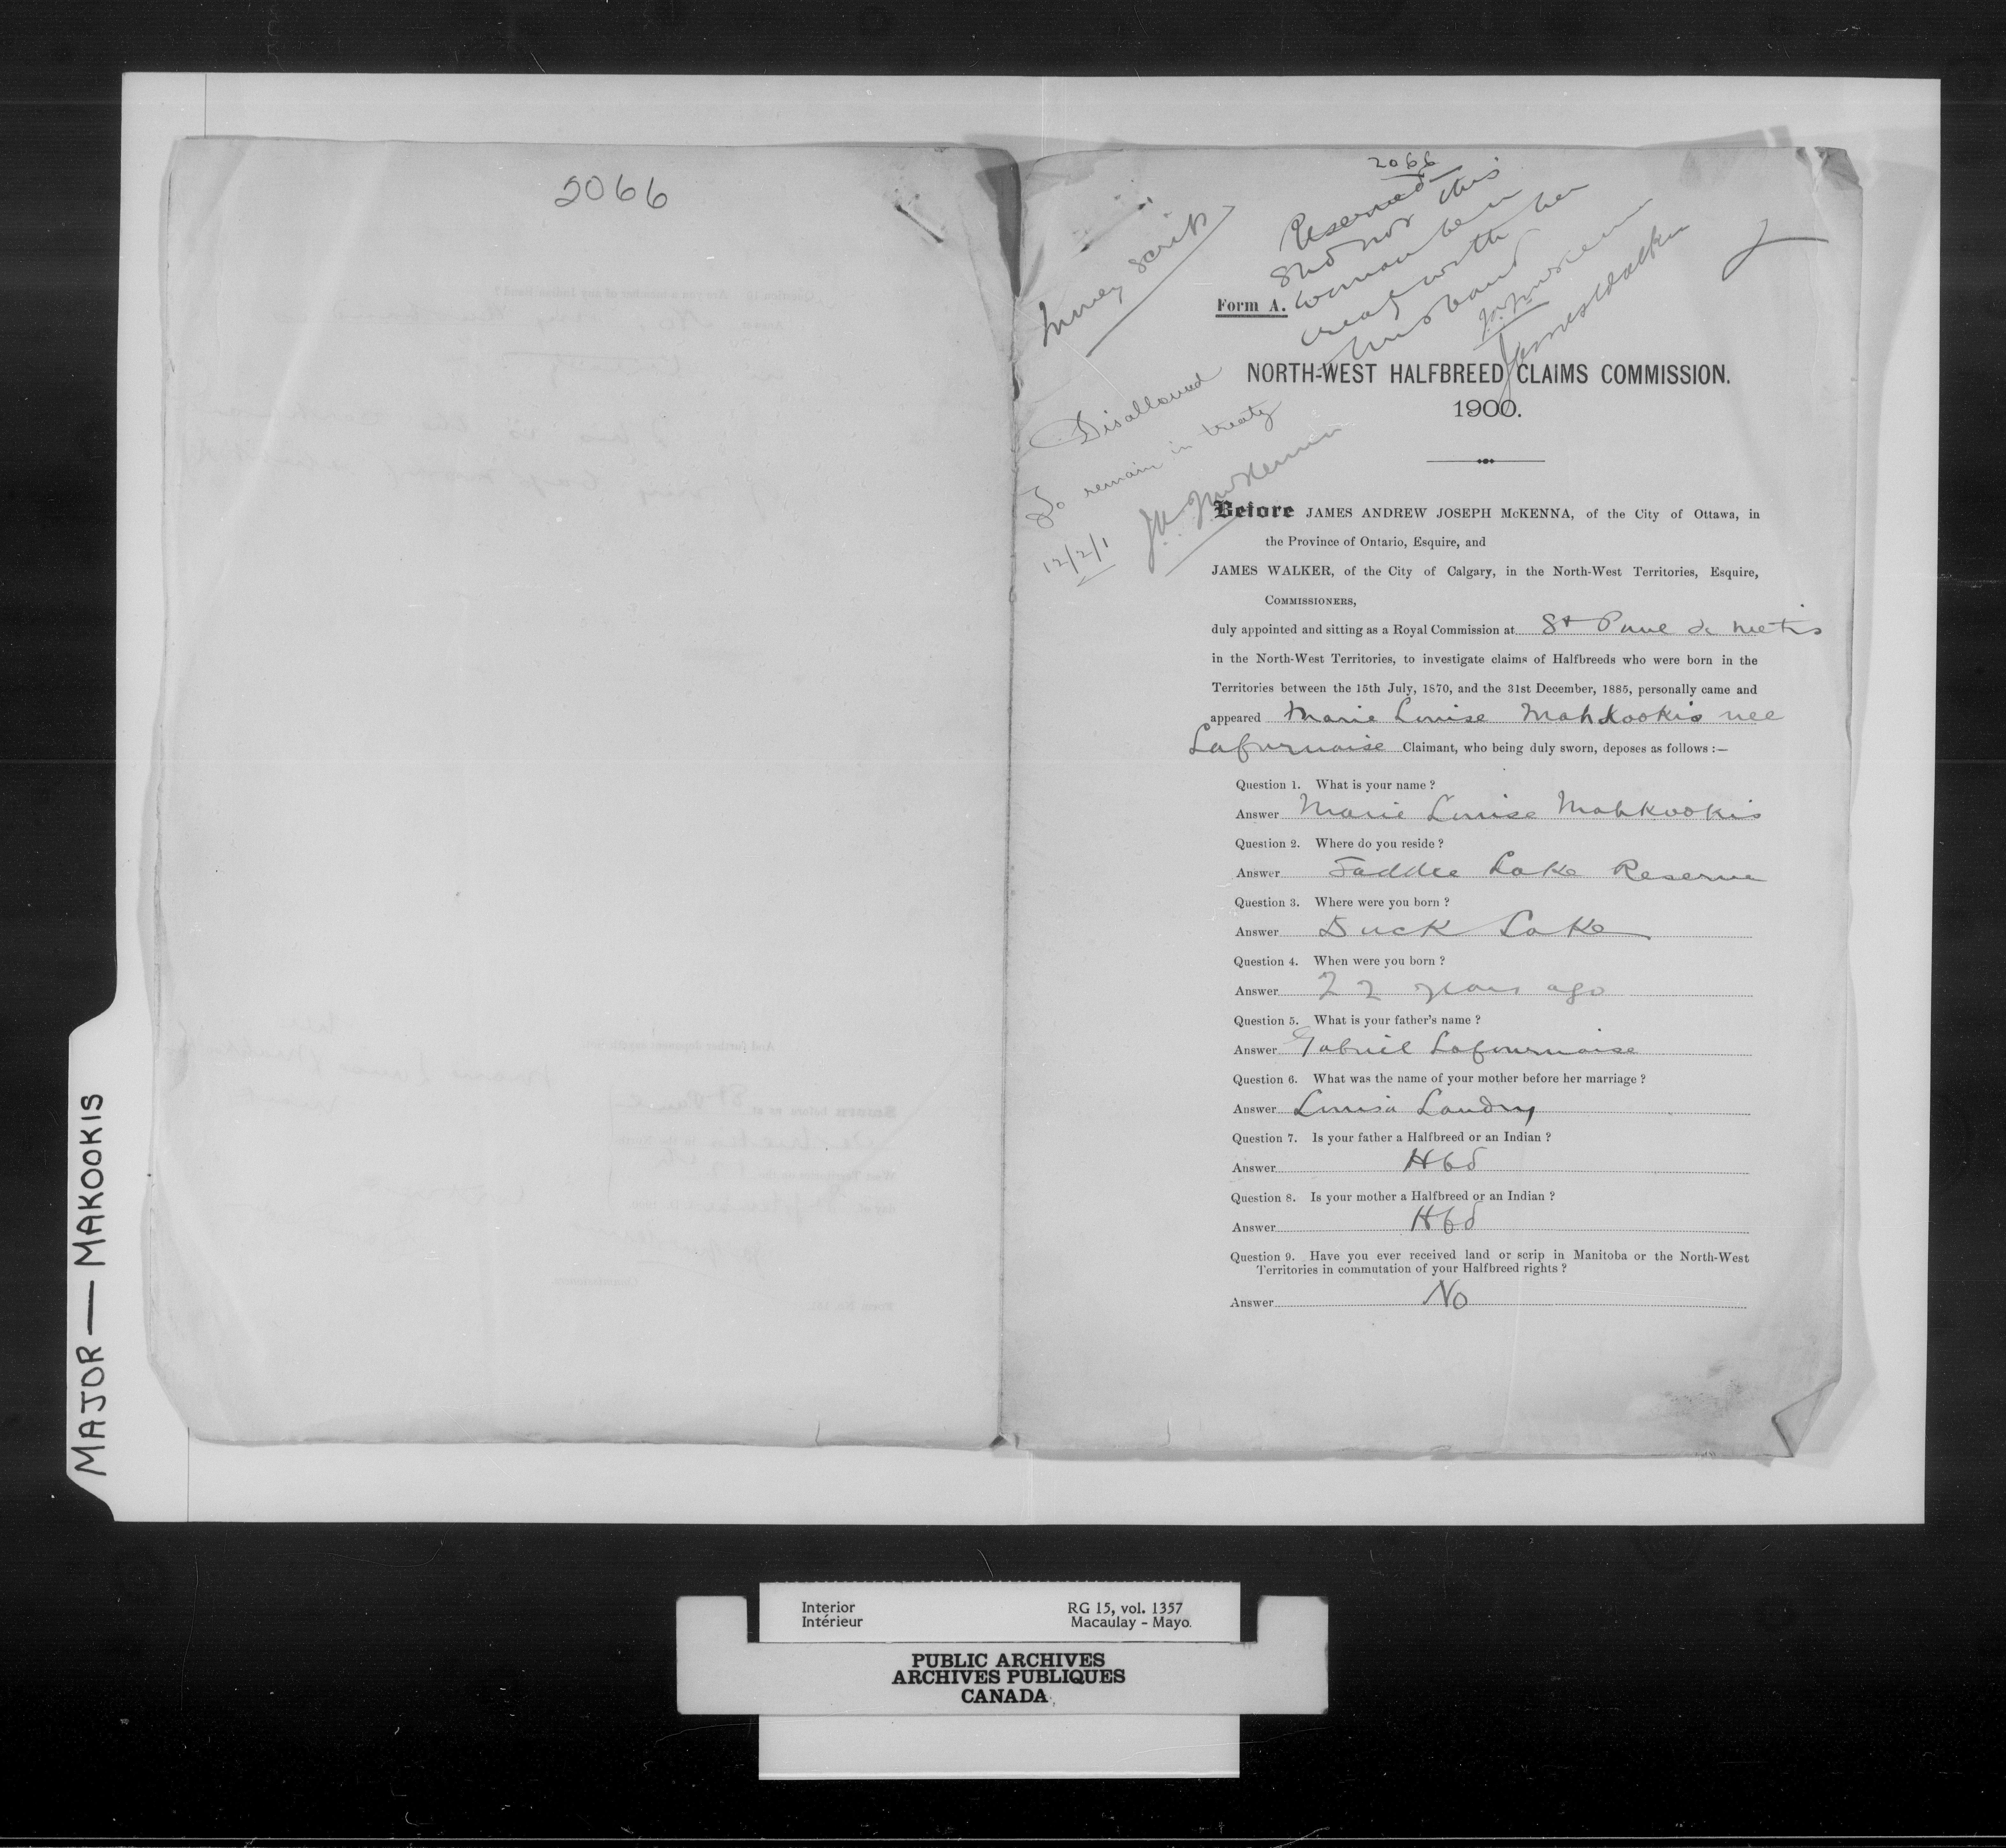 2066
2066
Reserved
Shd not this
woman be in
treaty with her
husband
J.A.J. McKenna
James Walker
Money scrip
Disallowed
To remain in treaty
J.A.J. McKenna
12/2/1
Form A.
NORTH-WEST HALFBREED CLAIMS COMMISSION.
1900.
Before JAMES ANDREW JOSEPH McKENNA, of the City of Ottawa, in
the Province of Ontario, Esquire, and
JAMES WALKER, of the City of Calgary, in the North-West Territories, Esquire,
COMMISSIONERS,
duly appointed and sitting as a Royal Commission at St Paul de Metis
in the North-West Territories, to investigate claims of Halfbreeds who were born in the
Territories between the 15th July, 1870, and the 31st December, 1885, personally came and
appeared Marie Louise Mahkookis nee
Lafurnaise Claimant, who being duly sworn, deposes as follows :—
Question 1. What is your name ?
Answer Marie Louise Mahkookis
Question 2. Where do you reside ?
Answer Saddle Lake Reserve
Question 3. Where were you born ?
Answer Duck Lake
Question 4. When were you born ?
Answer 22 years ago
Question 5. What is your father's name ?
Answer Gabriel Lafournaise
Question 6. What was the name of your mother before her marriage ?
Answer Louisa Landry
Question 7. Is your father a Halfbreed or an Indian ?
Answer Hbd
Question 8. Is your mother a Halfbreed or an Indian ?
Answer Hbd
Question 9. Have you ever received land or scrip in Manitoba or the North-West
Territories in commutation of your Halfbreed rights ?
Answer No
MAJOR — MAKOOKIS
Interior RG 15, vol. 1357
Intérieur Macaulay - Mayo.
PUBLIC ARCHIVES
ARCHIVES PUBLIQUES
CANADA